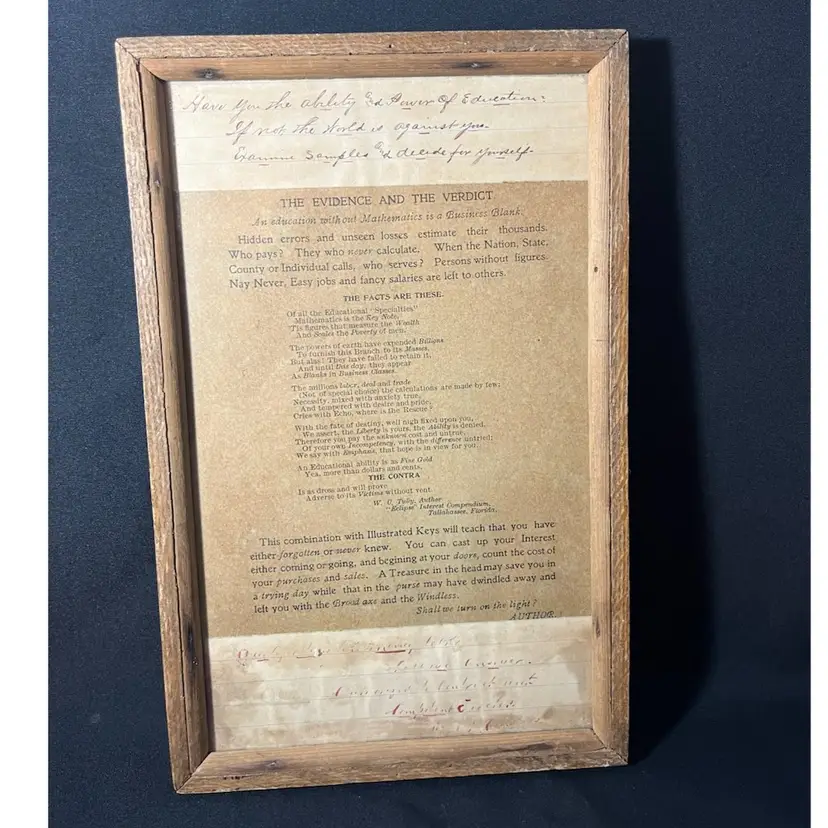 Have you the ability and Power Of Education:
If not, the World is against you.
Examine Samples and decide for yourself-
THE EVIDENCE AND THE VERDICT
An education without Mathematics is a Business Blank.
Hidden errors and unseen losses estimate their thousands.
Who pays? They who never calculate. When the Nation, State,
County or Individual calls, who serves? Persons without figures.
Nay Never, Easy jobs and fancy salaries are left to others.
THE FACTS ARE THESE.
Of all the Educational "Specialties"
Mathematics is the Key Note,
'Tis figures that measure the Wealth
And Scales the Poverty of men.
The powers of earth have expended Billions
To furnish this Branch to its Masses,
But alas! They have failed to retain it,
And until this day, they appear
As Blanks in Business Classes.
The millions labor, deal and trade
(Not of special choice) the calculations are made by few;
Necessity, mixed with anxiety true,
And tempered with desire and pride,
Cries with Echo, where is the Rescue?
With the fate of destiny, well nigh fixed upon you,
We assert, the Liberty is yours, the Ability is denied,
Therefore you pay the cost and untrue,
Of your own Incompetency, with the difference untried;
We say with Emphasis, that hope is in view for you.
An Educational ability is as Fine Gold
Yea, more than dollars and cents.
THE CONTRA
Is as dross and will prove
Adverse to its Victims without vent.
W. C. Author
"Eclipse" Interest Compendium,
Tallahassee, Florida.
This combination with Illustrated Keys will teach that you have
either forgotten or never knew. You can cast up your Interest
either coming or going, and begining at your doors, count the cost of
your purchases and sales. A Treasure in the head may save you in
a trying day while that in the purse may have dwindled away and
left you with the Broad axe and the Windless.
Shall we turn on the light?
AUTHOR.